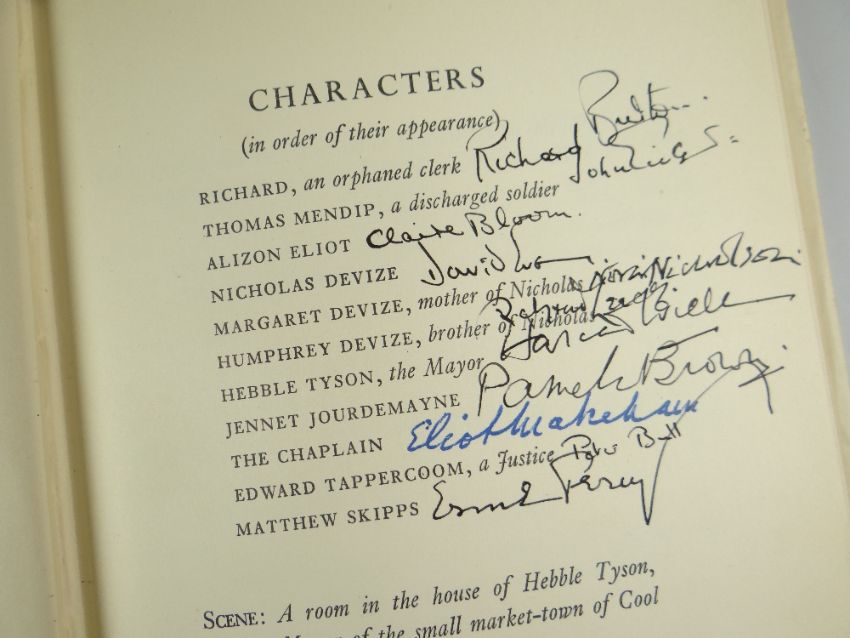 CHARACTERS
(in order of their appearance)
RICHARD, an orphaned clerk Richard Burton.
THOMAS MENDIP, a discharged soldier John
ALIZON ELIOT Claire Bloom.
NICHOLAS DEVIZE David
MARGARET DEVIZE, mother of Nicholas Nora Nicholson.
HUMPHREY DEVIZE, brother of Nicholas
HEBBLE TYSON, the Mayor
JENNET JOURDEMAYNE Pamela Brown.
THE CHAPLAIN Eliot Makeham
EDWARD TAPPERCOOM, a Justice Peter Bull
MATTHEW SKIPPS Esme Percy
SCENE: A room in the house of Hebble Tyson,
of the small market-town of Cool